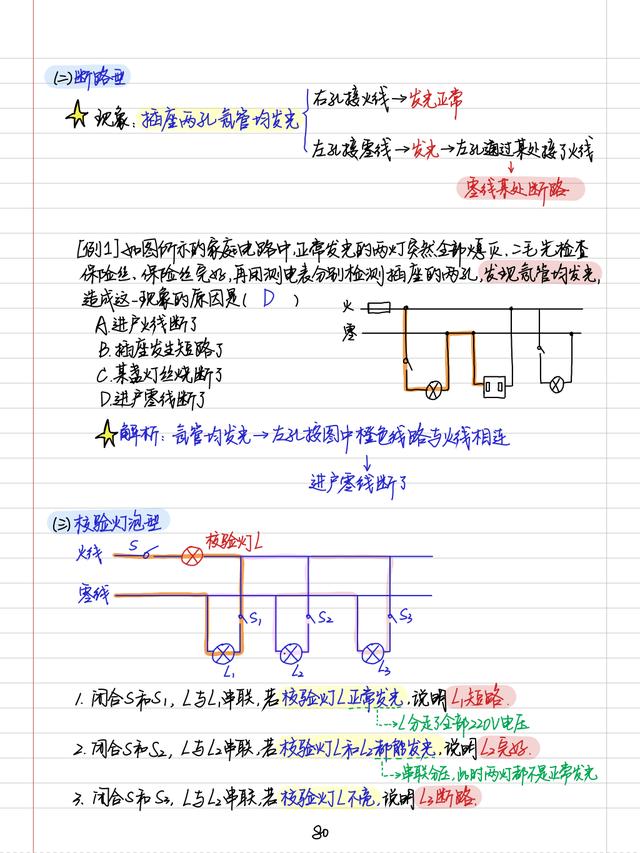 (二)断路型
现象:插座两孔氖管均发光
右孔接火线→发光正常
左孔接零线→发光→左孔通过某处接了火线
零线某处断路
[例1]如图所示的家庭电路中,正常发光的两灯突然全部熄灭.二毛先检查
保险丝、保险丝完好,再用测电表分别检测插座的两孔,发现氖管均发光,
造成这一现象的原因是( D )
A.进户火线断了
B.插座发生短路了
C.某盏灯丝烧断了
D.进户零线断了
火
零
解析:氖管均发光→左孔按图中橙色线路与火线相连
进户零线断了
(三)校验灯泡型
火线 S 校验灯L
零线
S₁ S₂ S₃
L₁ L₂ L₃
1. 闭合S和S₁, L与L₁串联,若校验灯L正常发光,说明L₁短路.
→L分走了全部220V电压
2. 闭合S和S₂, L与L₂串联,若校验灯L和L₂都能发光,说明L₂良好.
→串联分压,此时两灯都不是正常发光
3. 闭合S和S₃, L与L₂串联,若校验灯L不亮,说明L₃断路.
80